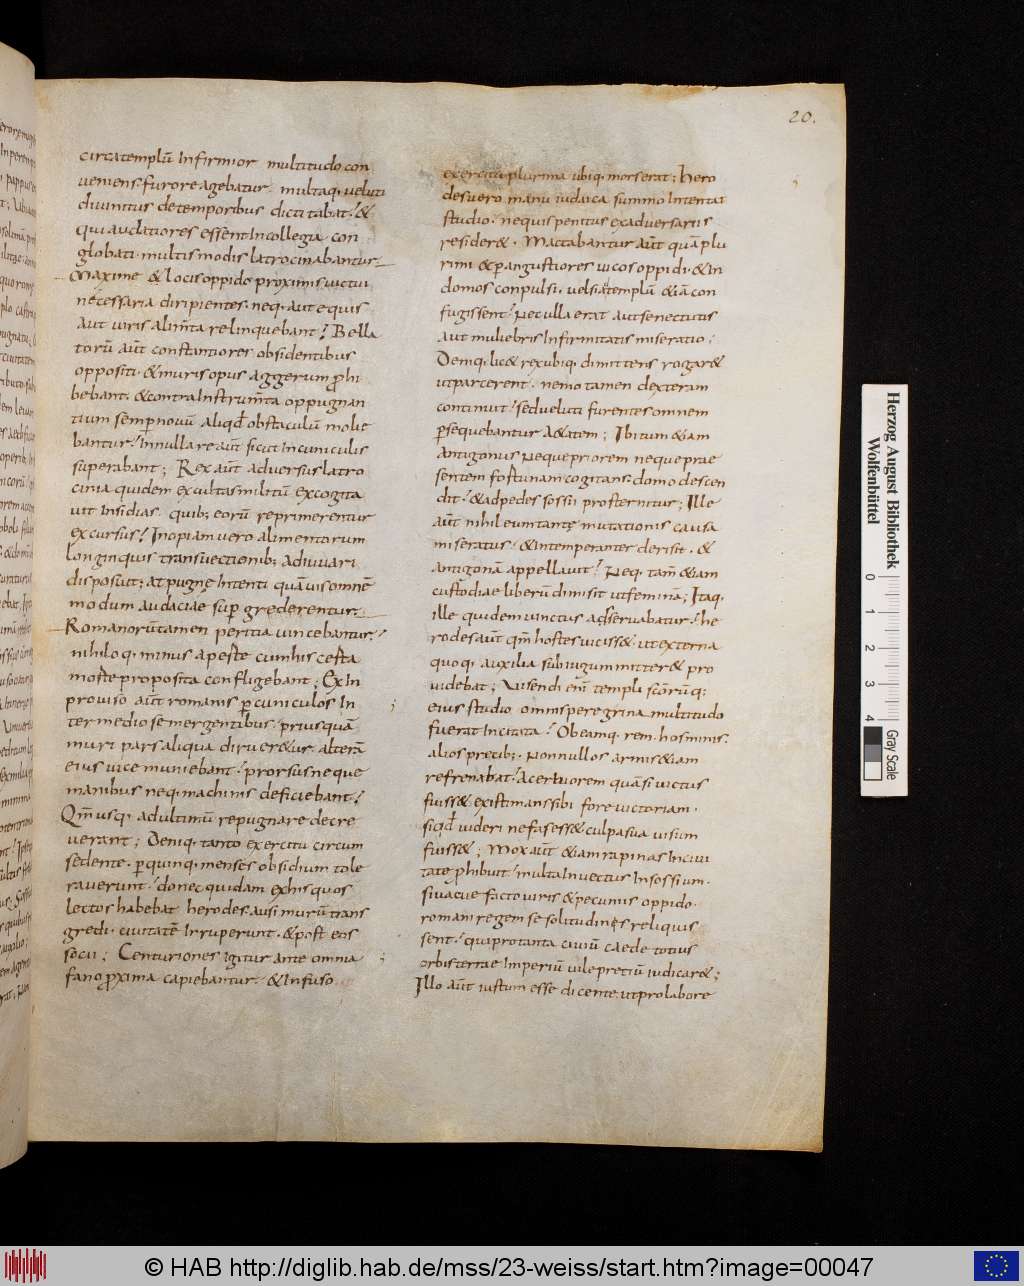 20.
circa templū Infirmior multitudo con
veniens furore agebatur multaq; veluti
divinitus de temporibus dictitabat; &
qui audatiores essent In collegia con
globati multis modis latrocinabantur;
Maxime & locis oppido proximis victui
necessaria diripientes. neq; aut equis
aut viris alim̄ta relinquebant; Bella
torū aūt constantiores obsidentibus
oppositi. & muris opus aggerum phi
bebant. & contra Instrum̄ta oppugnan
tium semp novū aliqd obstaculū molie
bantur; In nulla re aūt sicut In cuniculis
superabant; Rex aūt adversus latro
cinia quidem excultas militū excogita
vit Insidias quib; eorū reprimerentur
excursus; Inopiam vero alimentorum
longinquis transvectionib; adiuvari
disposuit; at pugnę Intenti quāvis omnē
modum audaciae sup grederentur;
Romanorū tamen peritia vincebantur;
nihiloq; minus a peste cum his certa
morte proposita confligebant; Ex In
proviso aūt romanis p cuniculos In
ter medio se mergentibus priusquā
muri pars aliqua dirueretur. alterā
eius vice muniebant. prorsus neque
manibus neq; machinis deficiebant;
Qm̄ usq; ad ultimū repugnare decre
verant; Deniq; tanto exercitu circum
sedente. p quinq; menses obsidium tole
raverunt. donec quidam ex his quos
lectos habebat herodes ausi murū trans
gredi. civitatē Irruperunt. & post eos
socii; Centuriones igitur ante omnia
fano pxima capiebantur. & Infuso
exercitu plurima ubiq; mors erat; hero
des vero manu iudaica summo Intentat
studio. ne quis penitus ex adversariis
resideret. Mactabantur aūt quā plu
rimi & p angustiores vicos oppidi. & In
domos conpulsi. vel si ad templū etiā con
fugissent; Nec ulla erat aut senectutis
aut muliebris Infirmitatis miseratio;
Deniq; licet rex ubiq; dimittens rogaret
ut parcerent. nemo tamen dexteram
continuit. sed veluti furentes omnem
psequebantur aetatem; Ibi tum etiam
antigonus neque priorem neque prae
sentem fortunam cogitans. domo descen
dit. & ad pedes sossii prosternitur; Ille
aūt nihil eum tantę mutationis causa
miseratus. & Intemperanter derisit. &
antigonā appellavit; Neq; tam̄ etiam
custodiae liberū dimisit ut feminā; Itaq;
ille quidem vinctus adservabatur; he
rodes aūt qm̄ hostes vicisset. ut externa
quoq; auxilia sub iugum mitteret pro
videbat; Visendi eni templi scōrūq;
eius studio omnis peregrina multitudo
fuerat Incitata; Ob eamq; rem. hos minis
alios precib; nonnullos armis etiam
refrenabat; Acerbiorem quā si victus
fuisset existimans sibi fore victoriam.
si qd videri nefas esset culpa sua visum
fuisset; Mox aūt etiam rapinas In civi
tate phibuit. multa Invectus In sossium.
si vacue facto viris & pecuniis oppido.
romani regem se solitudinis reliquis
sent; qui pro tanta civiū caede totius
orbis terrae Imperiū vile pretiū iudicaret;
Illo aūt iustum esse dicente. ut pro labore
Herzog August Bibliothek
Wolfenbüttel
0 1 2 3 4
Gray Scale
© HAB http://diglib.hab.de/mss/23-weiss/start.htm?image=00047